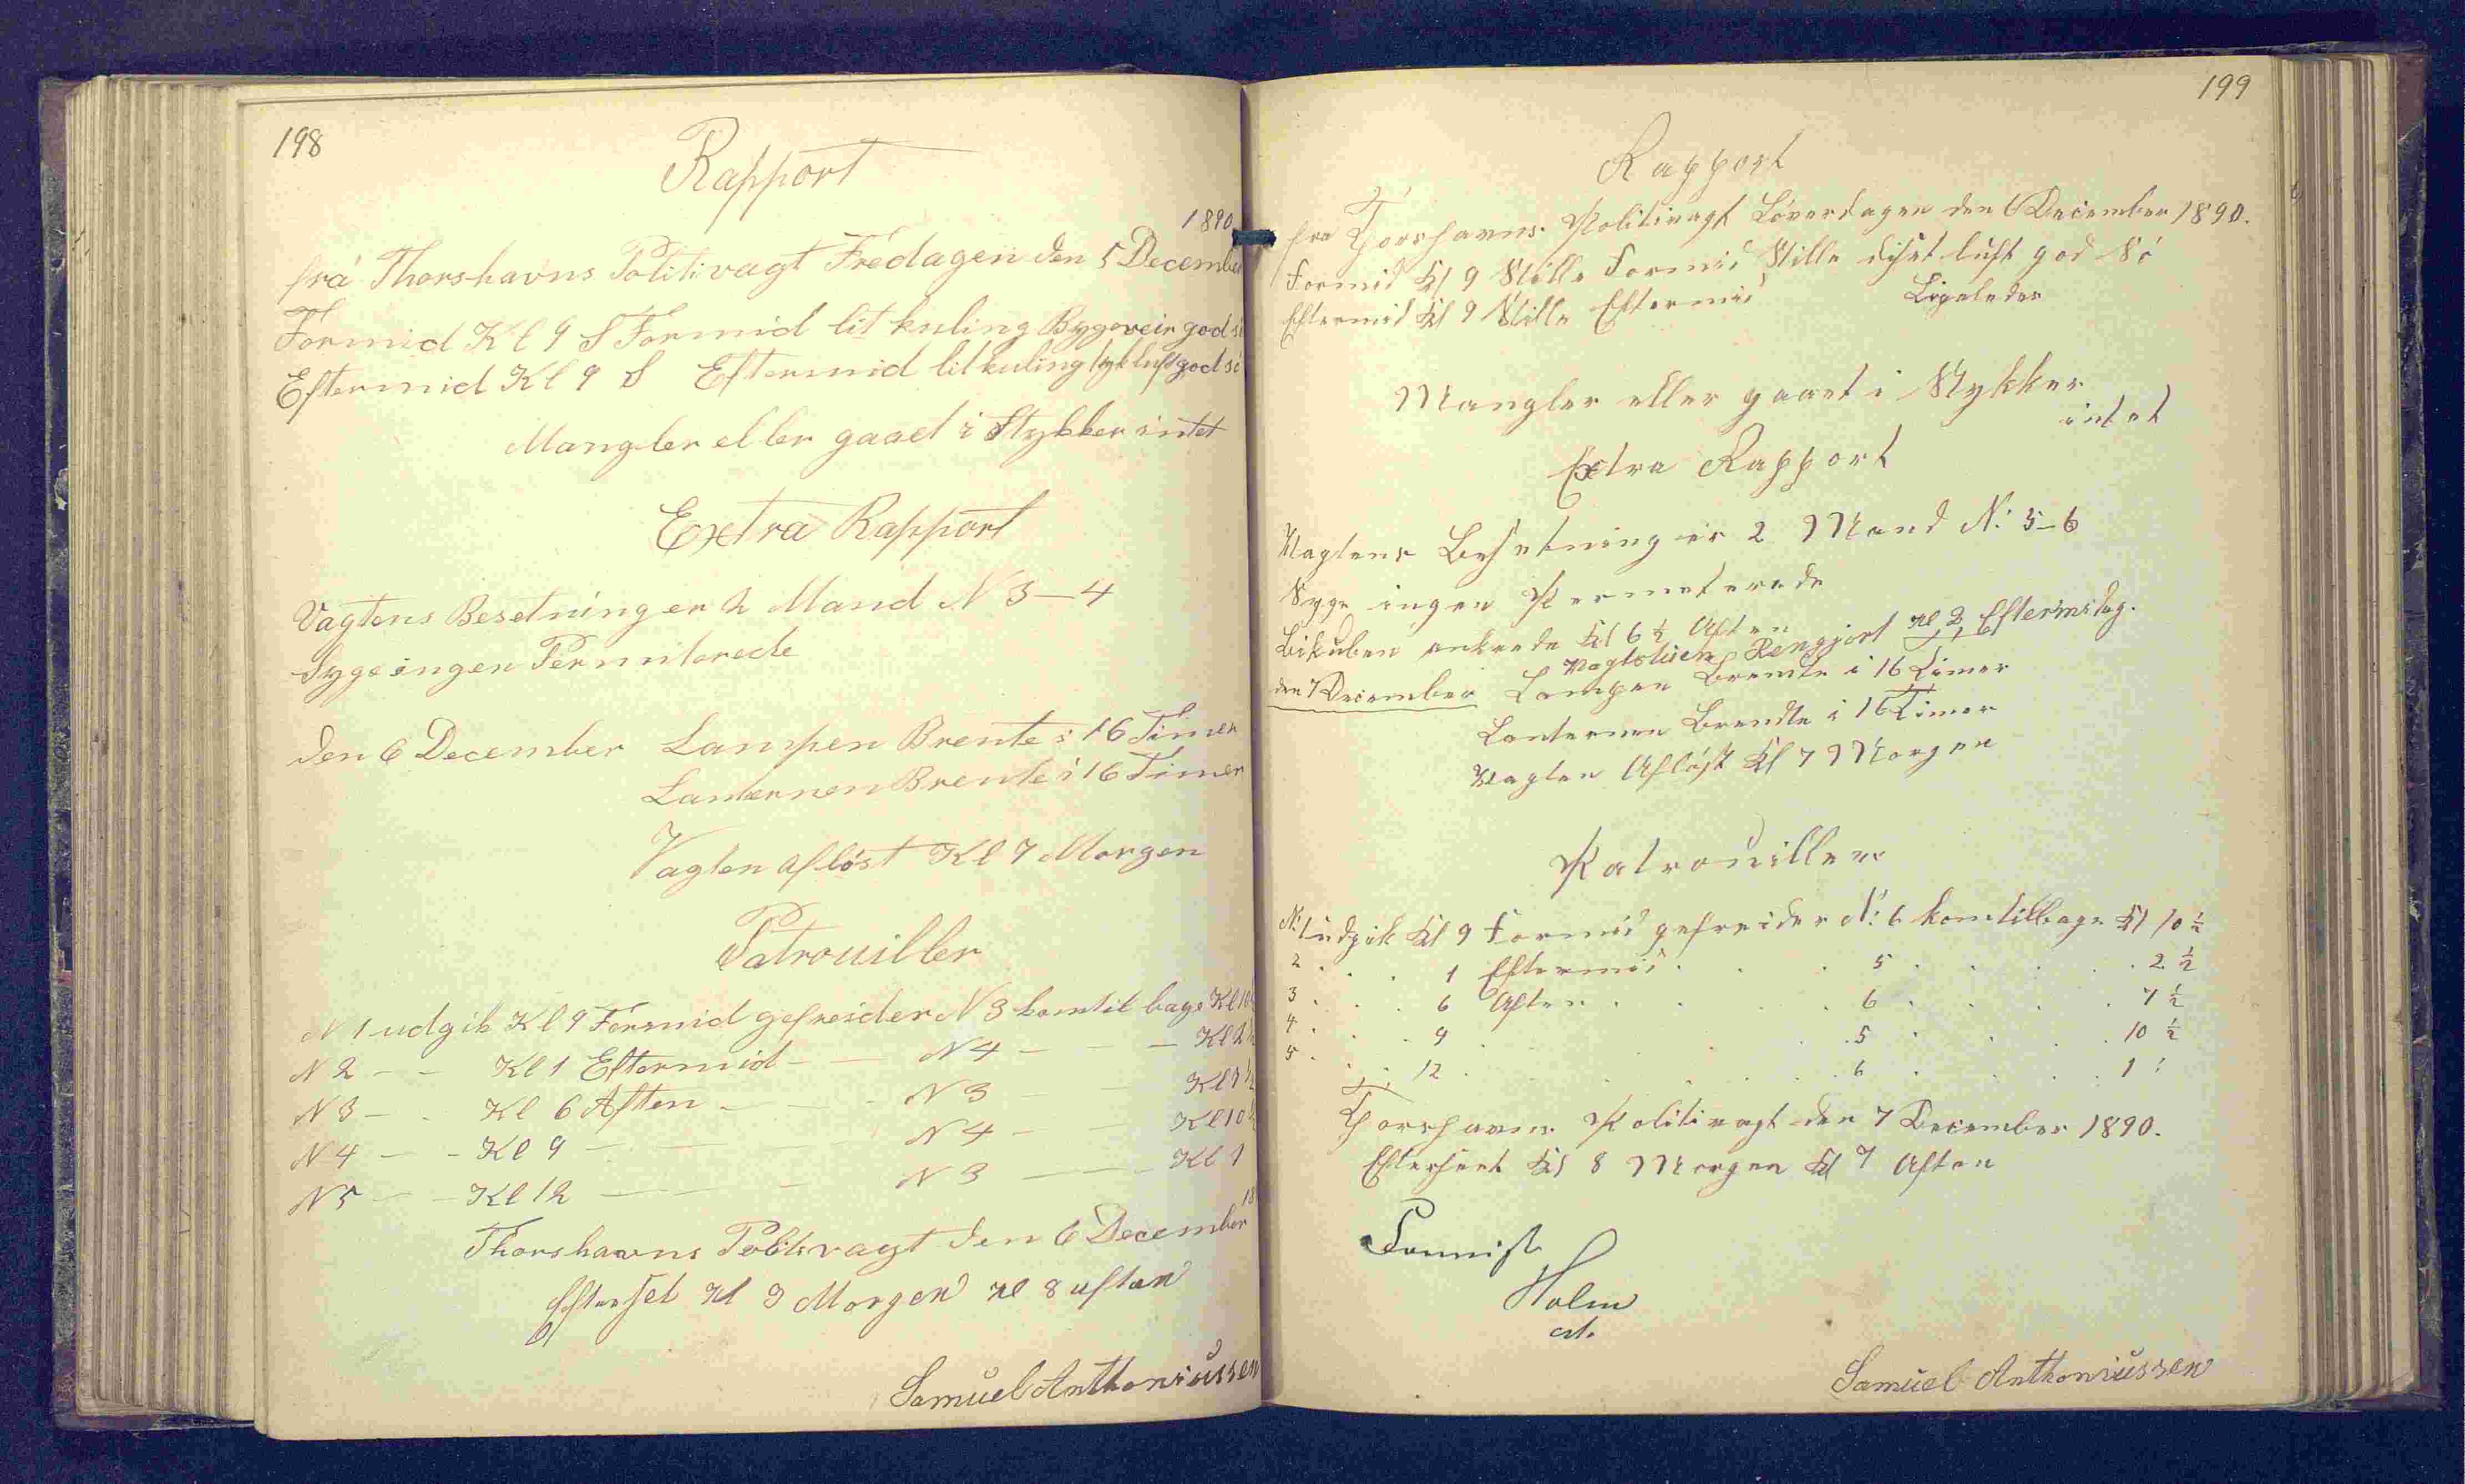 198
Rapport
1890
frá Thorshavns Politivagt Fredagen den 5 December
Formid Kl 9 S Formid lit kuling Bygeveir god sö
Eftermid Kl 9 S Eftermid lit kuling tyk luft god sö
Mangler eller gaaet i Stykker intet
Extra Rapport
Vagtens Besetning er 2 Mand N 3–4
Syge ingen Permiterede
den 6 December Lampen Brente i 16 Timer
Lanternen Brente i 16 Timer
Vagten afløst Kl 7 Morgen
Patrouiller
N 1 udgik Kl 9 Formid gefreider N 3 kom til bage Kl 10
N 2 — — Kl 1 Eftermid — — N 4 — — — Kl 2 ½
N 3 — . Kl 6 Aften — — — N 3 — — Kl 7 ½
N 4 — - Kl 9 — — — N 4 — — Kl 10 ½
N 5 — — Kl 12 — — — N 3 — — — Kl 1
18
Thorshavns Politivagt den 6 December
Efterset Kl 9 Morgen Kl 8 aften
Samuel Anthoniussen
199
Rapport
fra Thorshavns Politivagt Löverdagen den 6 December 1890.
Formid Kl 9 Stille Formid Stille diset luft god Sö
Eftermid Kl 9 Stille Eftermid Ligeledes
Mangler eller gaaet i Stykker
intet
Extra Rapport
Vagtens Besetning er 2 Mand N: 5–6
Syge ingen Permeterede
Bikuben ankrede Kl 6 ½ Aften
Vagtstuen Rengjort Kl 2 Eftermidag.
den 7 December Lampen Brendte i 16 Timer
Lanternen Brendte i 16 Timer
Vagten Afløst Kl 7 Morgen
Patrouiller
N: 1 udgik Kl 9 Formid gefreider N: 6 kom tilbage Kl 10 ½
2 . . . 1 Eftermid . . . 5 . . . . 2 ½
3 . . . 6 Aften . . . 6 . . . . 7 ½
4 . . . 9 . . . . 5 . . . . 10 ½
5 . . . 12 . . . . 6 . . . . 1 :
Thorshavns Politivagt den 7 December 1890.
Efterseet Kl 8 Morgen Kl 7 Aften
Holm
Samuel Anthoniussen